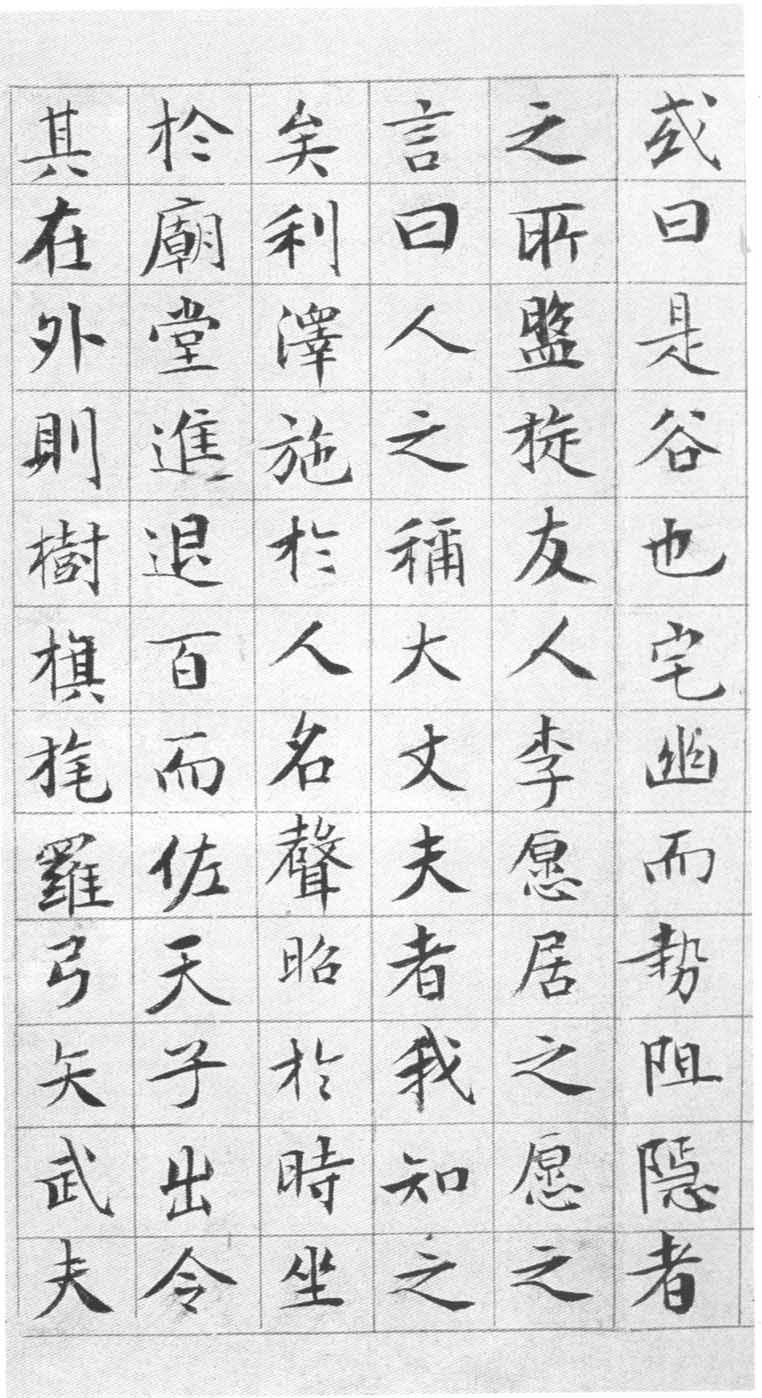 或曰是谷也宅幽而勢阻隱者
之所盤旋友人李愿居之愿之
言曰人之稱大丈夫者我知之
矣利澤施於人名聲昭於時坐
於廟堂進退百而佐天子出令
其在外則樹旗旄羅弓矢武夫